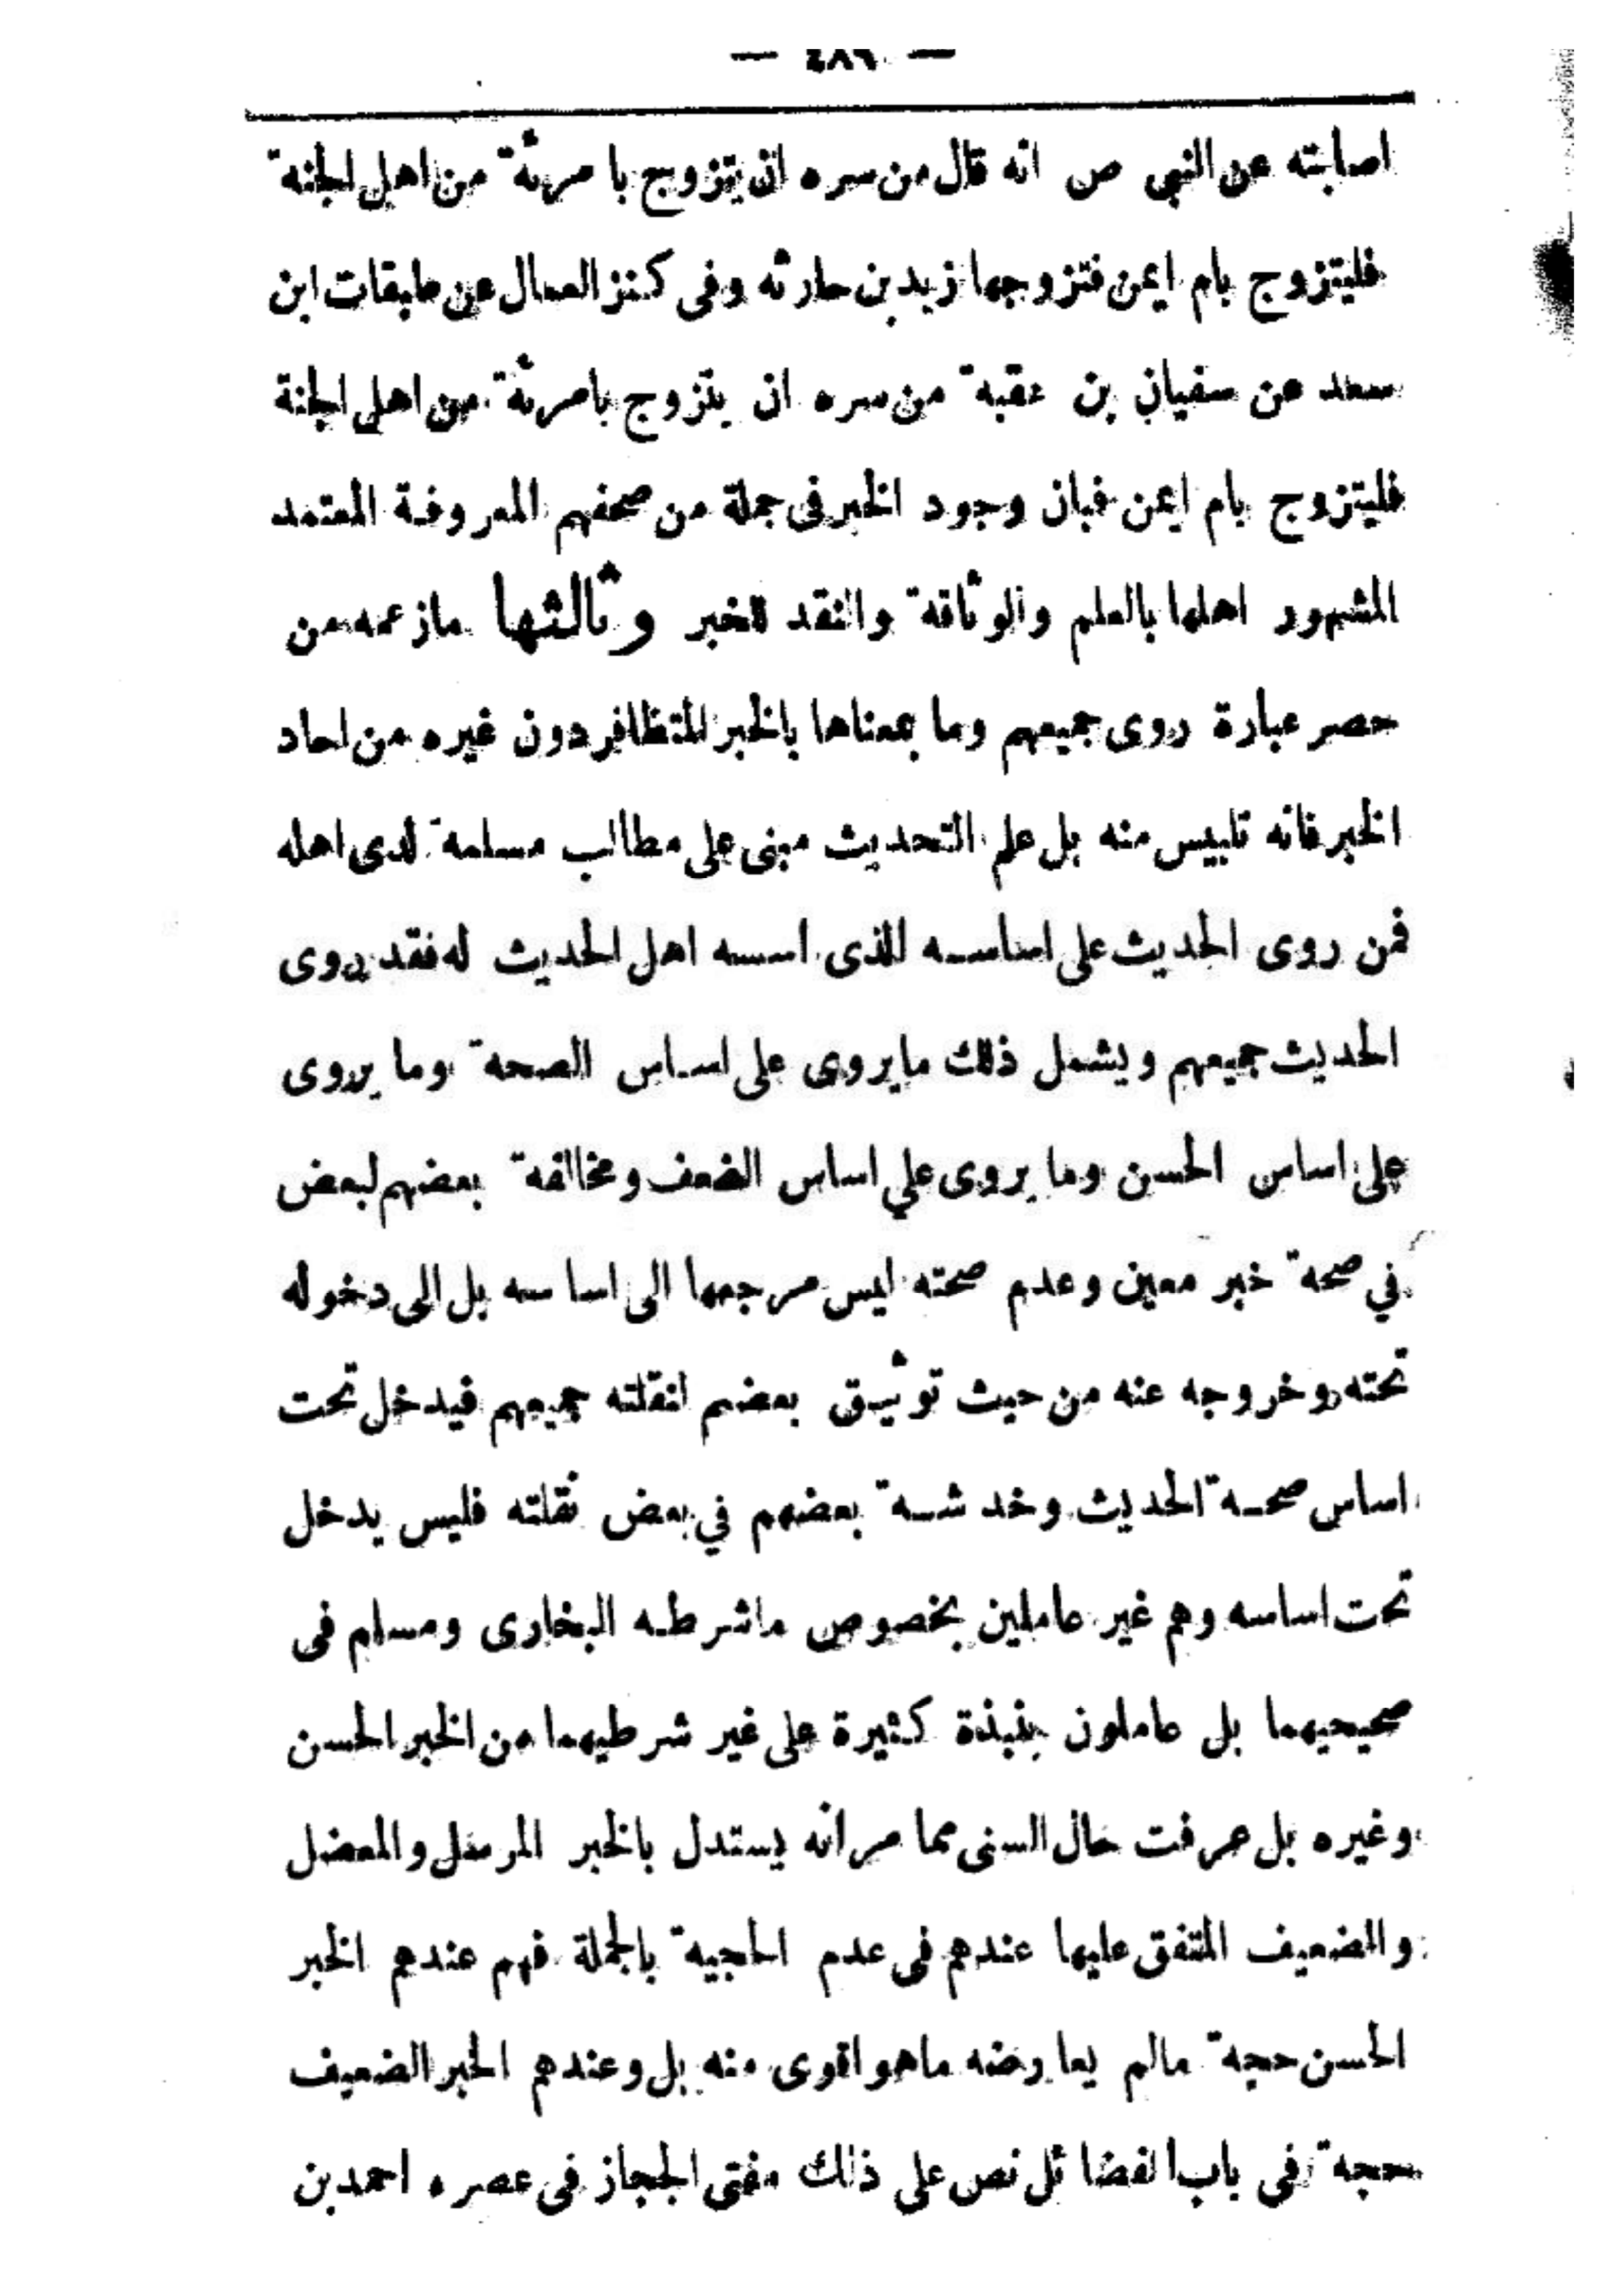 — ٤٨٦ —
اصابته عن النبى ص انه قال من سره ان يتزوج بامرئة من اهل الجنة
فليتزوج بام ايمن فتزوجها زيد بن حارثه وفى كنز العمال عن طبقات ابن
سعد عن سفيان بن عقبة من سره ان يتزوج بامرئة من اهل الجنة
فليتزوج بام ايمن فبان وجود الخبر فى جملة من صحفهم المعروفة المعتمد
المشهور اهلها بالعلم والوثاقة والنقد للخبر وثالثها مازعمه من
حصر عبارة روى جميعهم وما بمعناها بالخبر المتظافر دون غيره من احاد
الخبر فانه تلبيس منه بل علم التحديث مبنى على مطالب مسلمة لدى اهله
فمن روى الحديث على اساسه الذى اسسه اهل الحديث له فقد روى
الحديث جميعهم ويشمل ذلك مايروى على اساس الصحة وما يروى
على اساس الحسن وما يروى علي اساس الضعف ومخالفة بعضهم لبعض
في صحة خبر معين وعدم صحته ليس مرجعها الى اساسه بل الى دخوله
تحته وخروجه عنه من حيث توثيق بعضهم لنقلته جميعهم فيدخل تحت
اساس صحة الحديث وخدشة بعضهم في بعض نقلته فليس يدخل
تحت اساسه وهم غير عاملين بخصوص ماشرطه البخارى ومسلم فى
صحيحيهما بل عاملون بنبذة كثيرة على غير شرطيهما من الخبر الحسن
وغيره بل عرفت حال السنى مما مر انه يستدل بالخبر المرسل والمعضل
والضعيف المتفق عليها عندهم فى عدم الحجية بالجملة فهم عندهم الخبر
الحسن حجة مالم يعارضه ماهو اقوى منه بل وعندهم الخبر الضعيف
حجة فى باب الفضائل نص على ذلك مفتى الحجاز فى عصره احمد بن